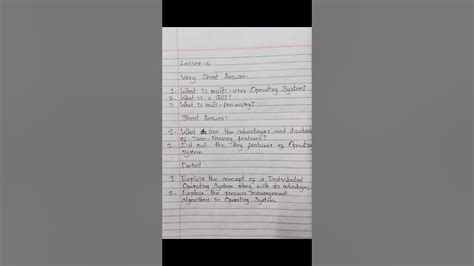 Lesson-4
Very Short Answer
1. What is multi-user Operating System?
2. What is a GUI?
3. What is multi-processing?
Short Answer:
1. What are the advantages and disadva
of Time-sharing features?
2. List out the key features of Operati
System
Detail
1. Explain the concept of a Distributed
Operating System along with its advantages.
2. Explain the process management
algorithms in Operating System.